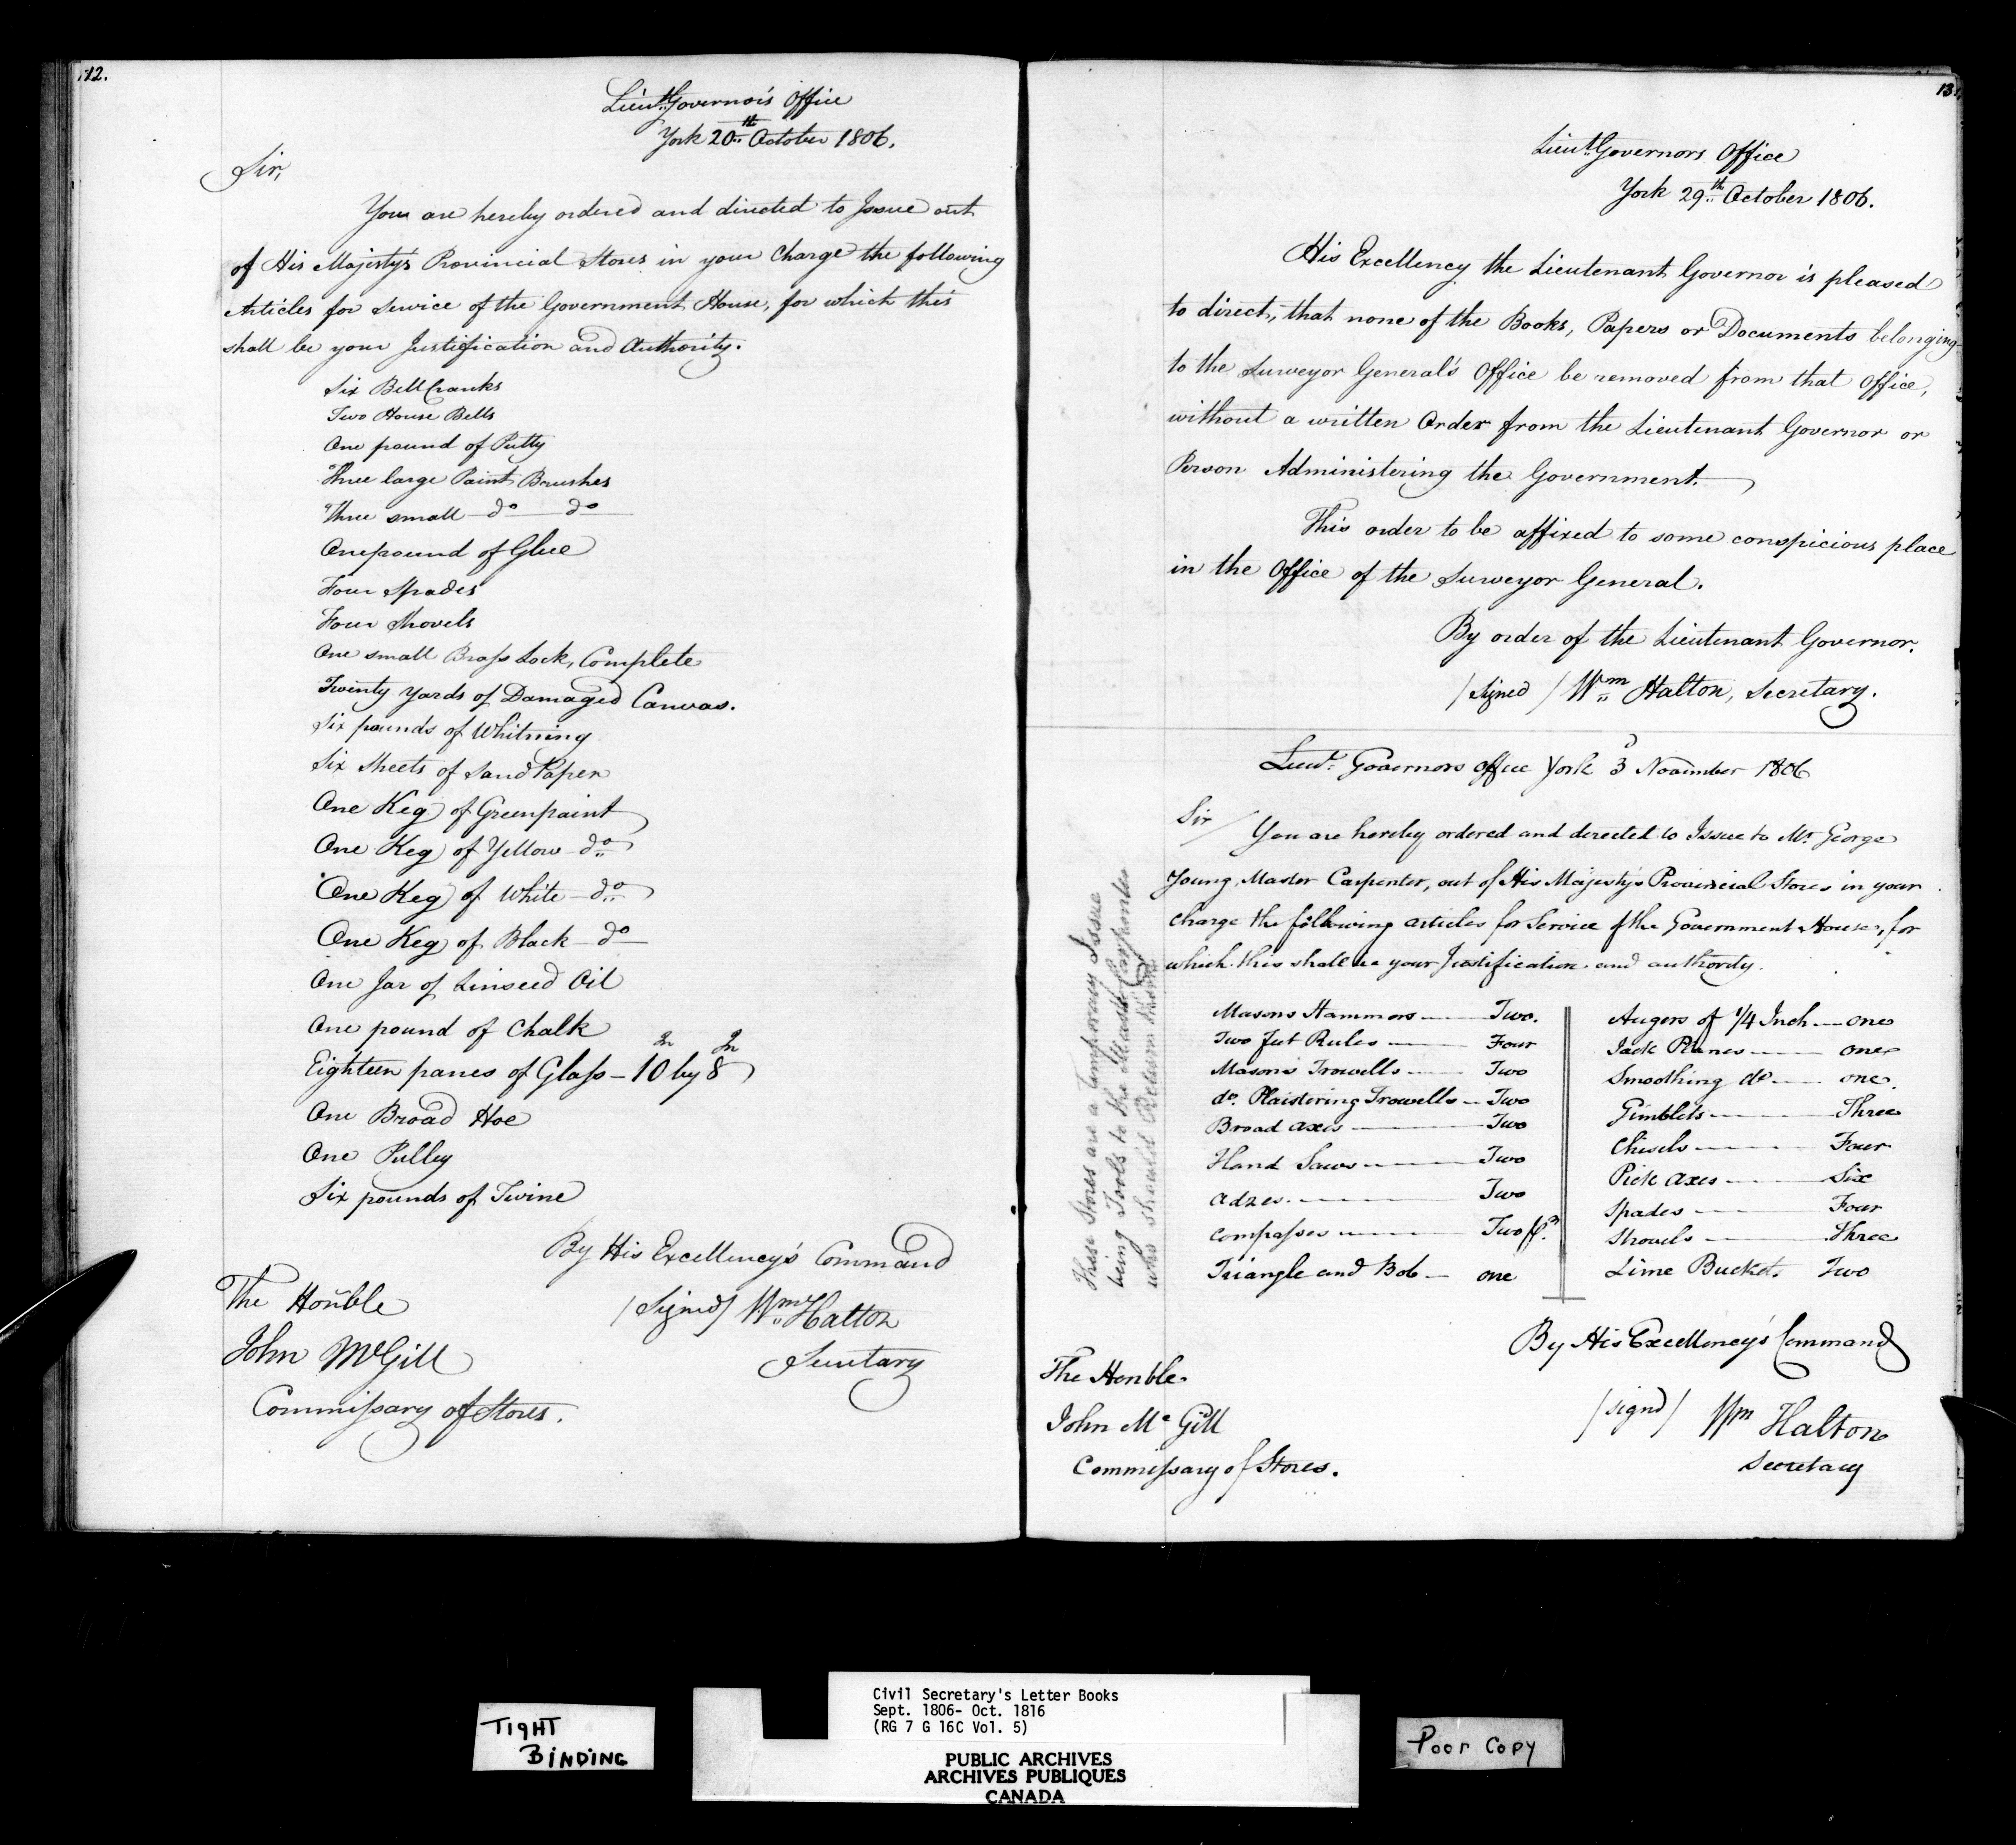 12.
Lieut. Governor's Office
York 20th October 1806.
Sir,
You are hereby ordered and directed to Issue out
of His Majesty's Provincial Stores in your Charge the following
Articles for Service of the Government House, for which this
shall be your Justification and Authority.
Six Bell Cranks
Two House Bells
One pound of Putty
Three large Paint Brushes
Three small do do
One pound of Glue
Four Spades
Four Shovels
One small Brass Lock, Complete
Twenty yards of Damaged Canvas.
Six pounds of Whitning
Six Sheets of Sand Paper
One Keg of Green paint
One Keg of Yellow do
One Keg of White do
One Keg of Black do
One Jar of Linseed Oil
One pound of Chalk
Eighteen panes of Glass - 10 In by 8 In
One Broad Hoe
One Pulley
Six pounds of Twine
By His Excellency's Command
/Signed/ Wm Halton
Secretary
The Honble
John McGill
Commissary of Stores.
13
Lieut. Governors Office
York 29th October 1806.
His Excellency the Lieutenant Governor is pleased
to direct, that none of the Books, Papers or Documents belonging
to the Surveyor General's Office be removed from that Office,
without a written Order from the Lieutenant Governor or
Person Administering the Government.
This order to be affixed to some conspicious place
in the Office of the Surveyor General.
By order of the Lieutenant Governor.
/Signed/ Wm Halton, Secretary.
Lieut. Governors office York 3 November 1806
Sir/
You are hereby ordered and directed to Issue to Mr George
Young, Master Carpenter, out of His Majesty's Provincial Stores in your
charge the following articles for Service of the Government House, for
which this shall be your Justification and authority.
These Stores are a temporary Issue
being Tools to the Master Carpenter
who should Return them
Masons Hammers Two.
Two feet Rules Four
Masons Trowells Two
do. Plaistering Trowells Two
Broad axes Two
Hand Saws Two
adzes Two
compasses Two pr.
Triangle and Bob one
Augers of 1/4 Inch one
Jack Planes one
Smoothing do one.
Gimblets Three
Chisels Four
Pick axes Six
Spades Four
Shovels Three
Lime Buckets Two
By His Excellency's Command
/signd/ Wm Halton
Secretary
The Honble.
John Mc Gill
Commissary of Stores.
TIGHT
BINDING
Civil Secretary's Letter Books
Sept. 1806- Oct. 1816
(RG 7 G 16C Vol. 5)
PUBLIC ARCHIVES
ARCHIVES PUBLIQUES
CANADA
Poor Copy